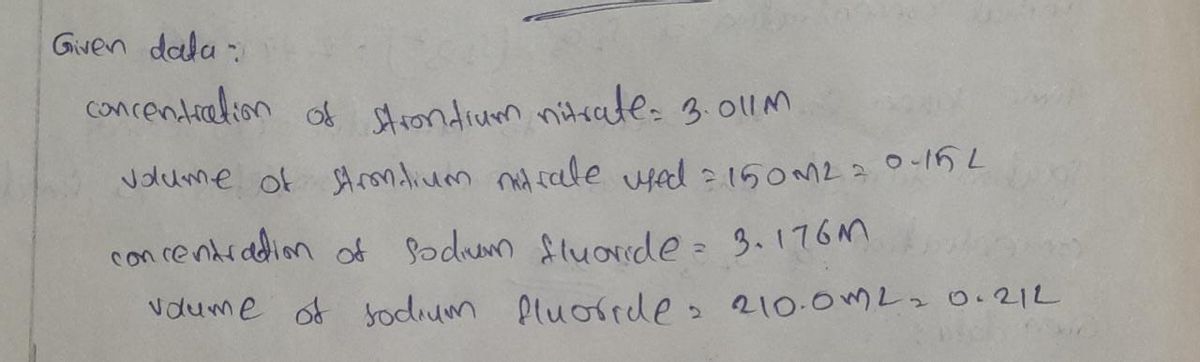 Given data :
concentration of strontium nitrate = 3.011M
volume of strontium nitrate used = 150mL = 0.15L
concentration of sodium fluoride = 3.176M
voume of sodium fluoride = 210.0mL = 0.21L